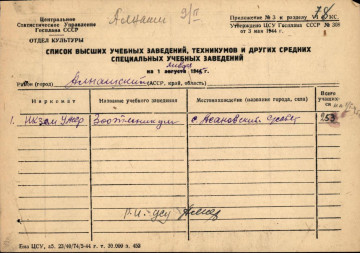 Центральное
Статистическое Управление
Госплана СССР
ОТДЕЛ КУЛЬТУРЫ
Алнаши
Э/п
Приложение № 3 к разделу
78
Утверждено ЦСУ Госплана СССР № 309
от 3 мая 1944 г.
СПИСОК ВЫСШИХ УЧЕБНЫХ ЗАВЕДЕНИЙ, ТЕХНИКУМОВ И ДРУГИХ СРЕДНИХ
СПЕЦИАЛЬНЫХ УЧЕБНЫХ ЗАВЕДЕНИЙ
января
на 1 августа 1945 г.
Район (город) Алнашский (АССР, край, область)
Наркомат
Название учебного заведения
Местонахождение (название города, села)
Всего учащихся
1. Нкзем УАССР Зоотехникум с. Асановский 253
Бланк ЦСУ, зд. 22/49/74/3-44 г. т. 20.000 з. 459